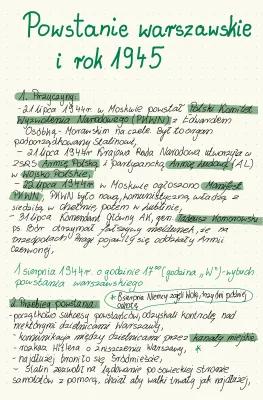 Powstanie warszawskie
i rok 1945
1. Przyczyny:
- 21 lipca 1944r. w Moskwie powstał Polski Komitet
Wyzwolenia Narodowego (PKWN) z Edwardem
Osóbką-Morawskim na czele. Był to organ
podporządkowany Stalinowi,
- 21 lipca 1944r Krajowa Rada Narodowa utworzyła w
ZSRS Armię Polską i partyzancką Armię Ludową (AL)
w Wojsko Polskie,
- 22 lipca 1944r w Moskwie ogłoszono Manifest
PKWN, PKWN było nową, komunistyczną władzą z
siedzibą w Chełmie, potem w Lublinie,
- 31 lipca Komendant Główny AK, gen. Tadeusz Komorowski
ps. Bór otrzymał fałszywy meldunek, że na
przedpolach Pragi pojawiły się oddziały Armii
Czerwonej,
1 sierpnia 1944r. o godzinie 17⁰⁰ (godzina „W")-wybuch
powstania warszawskiego
2. Przebieg powstania:
* 8 sierpnia Niemcy zajęli Wolę,
- początkowo sukcesy powstańców, odzyskali kontrolę nad
niektórymi dzielnicami Warszawy,
- komunikacja między dzielnicami przez kanały miejskie,
- rozkaz Hitlera o zniszczeniu Warszawy, *
- najdłużej broniło się Śródmieście,
- Stalin zezwolił na lądowanie po sowieckiej stronie
samolotów z pomocą, chciał aby walki trwały jak najdłużej,